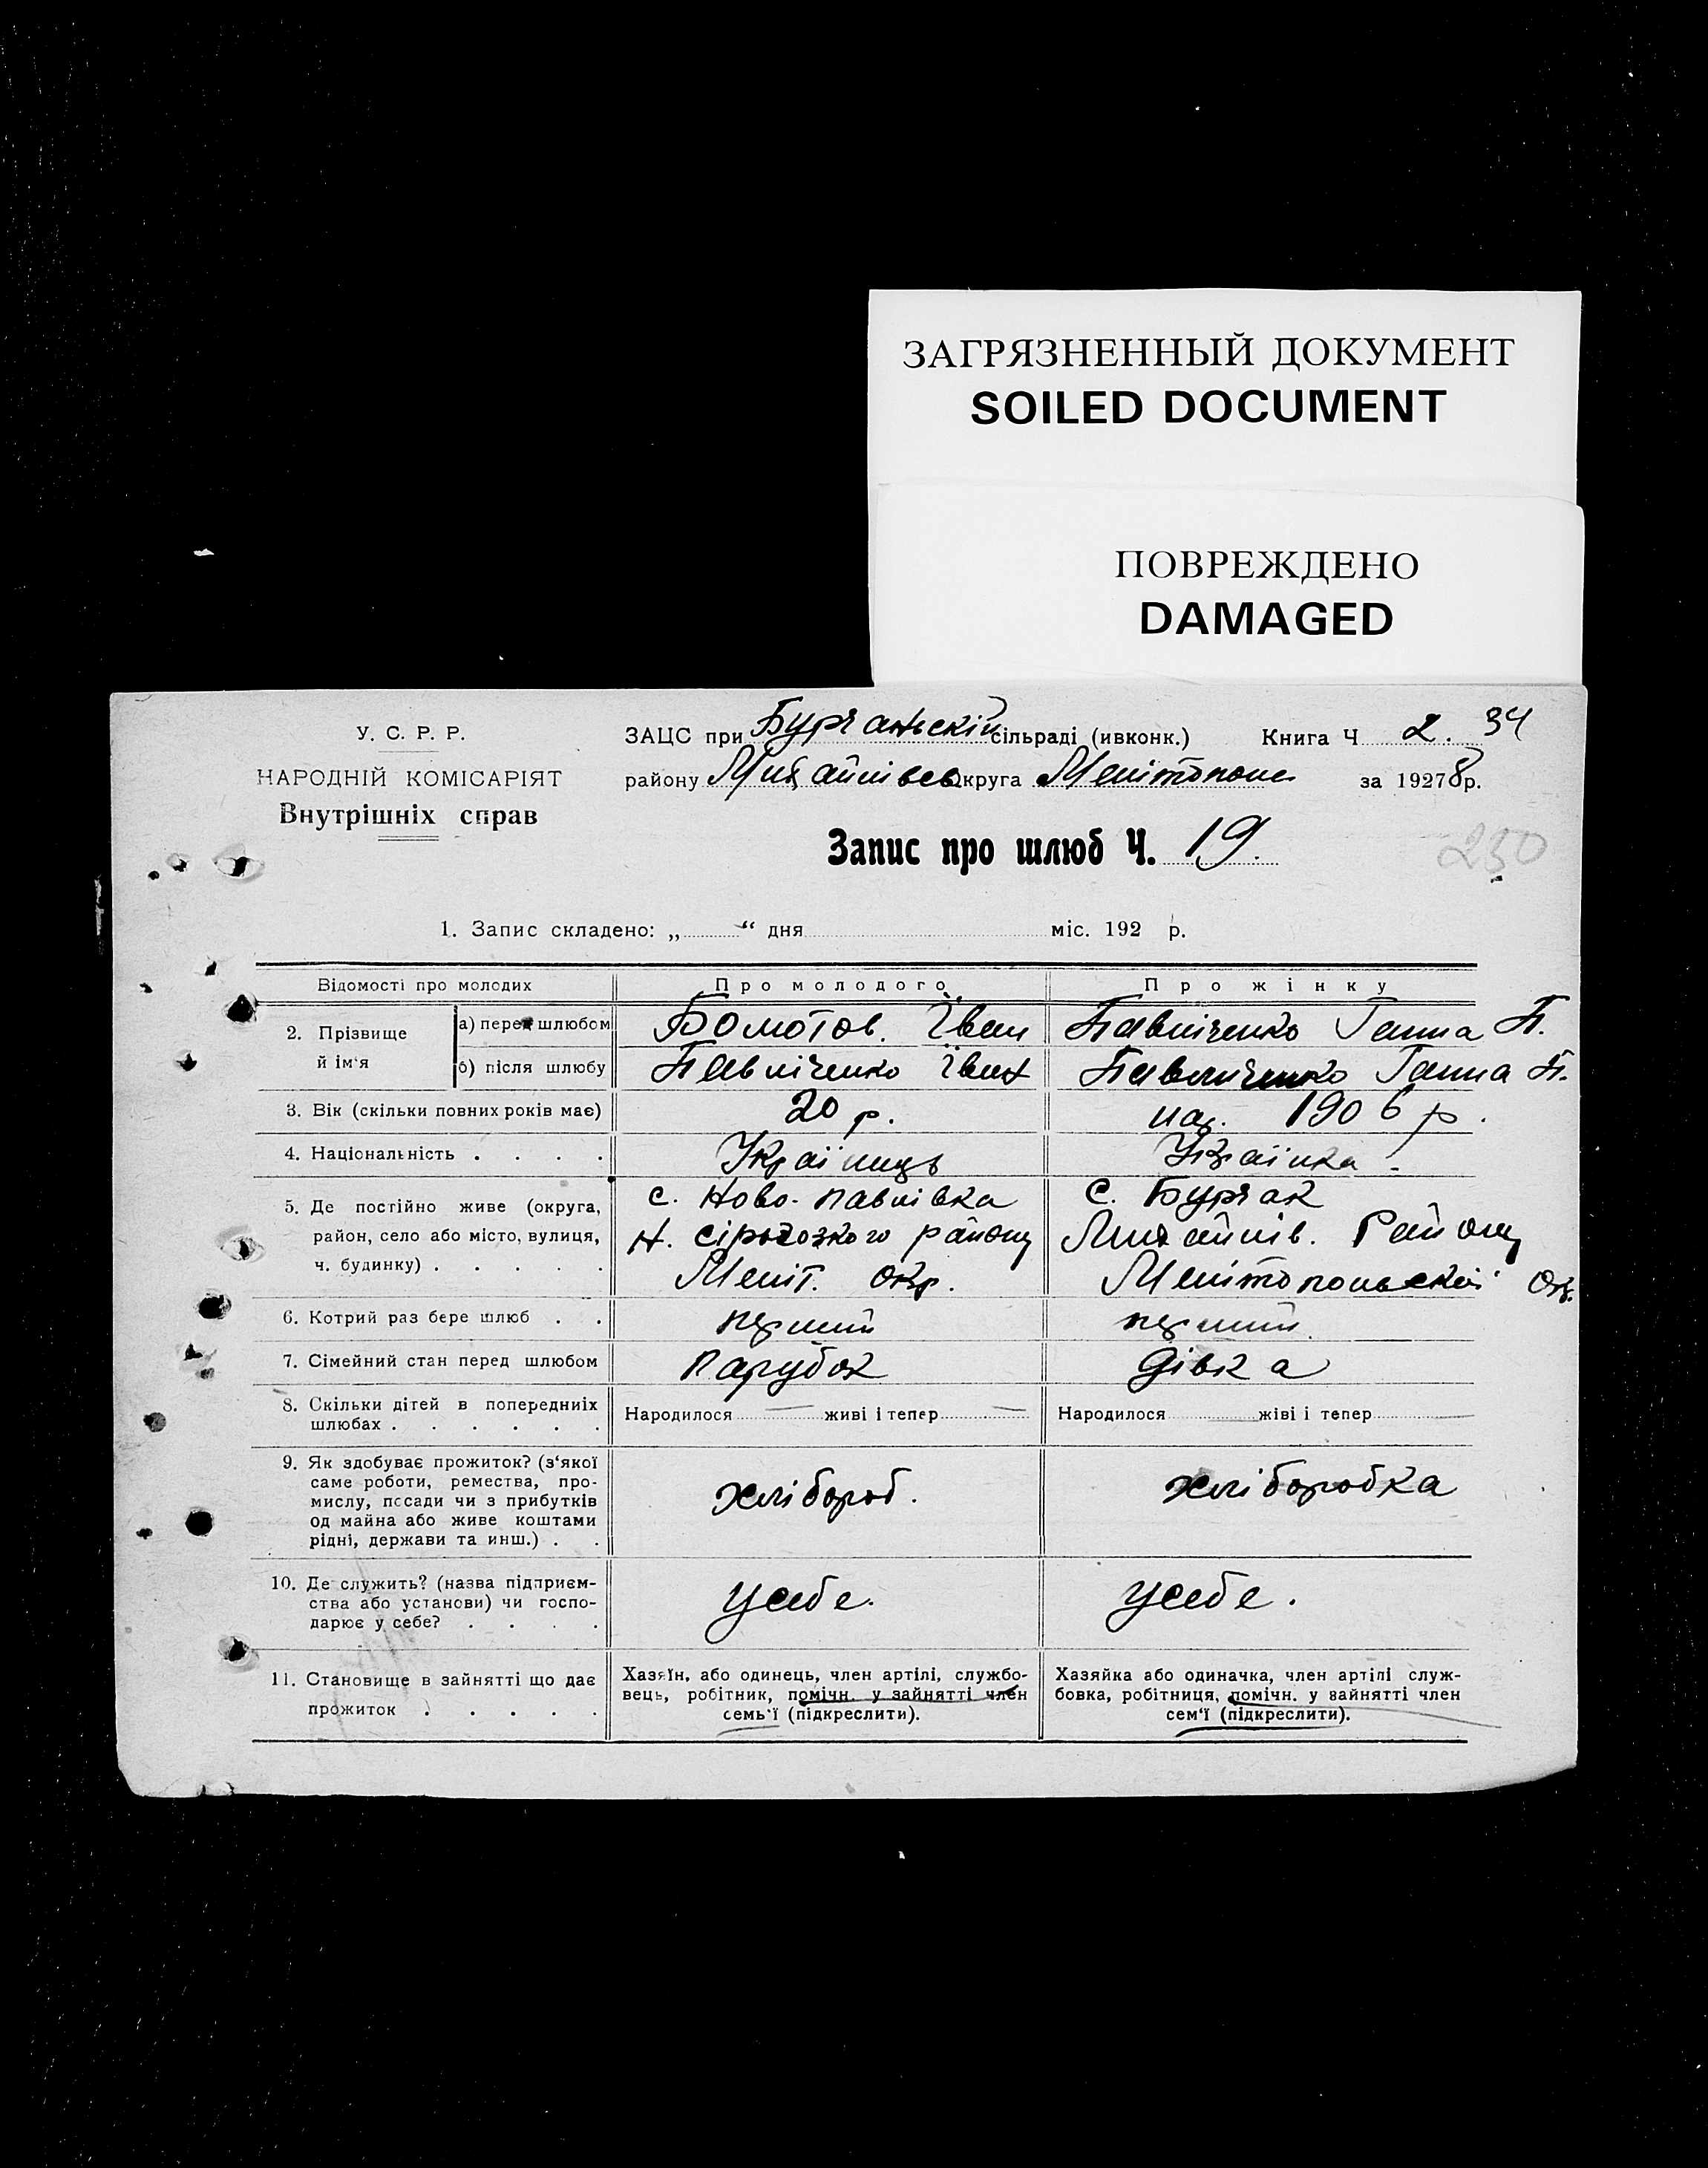 ЗАГРЯЗНЕННЫЙ ДОКУМЕНТ
SOILED DOCUMENT
ПОВРЕЖДЕНО
DAMAGED
У. С. Р. Р.
НАРОДНІЙ КОМІСАРІЯТ
Внутрішніх справ
ЗАЦС при Бурчаньскій сільраді (ивконк.) Книга Ч 2. 34
району Михайлівсь округа Мелітопольс за 19278р.
Запис про шлюб Ч. 19.
250
1. Запис складено: „ “ дня міс. 192 р.
Відомості про молодих Про молодого Про жінку
2. Прізвище й ім'я а) перед шлюбом Боматов. Іван Павліченко Ганна П.
б) після шлюбу Павліченко Іван Павличенко Ганна П.
3. Вік (скільки повних років має) 20 р. нар. 1906 р.
4. Національність Українець Українка
5. Де постійно живе (округа, с. Ново-павлівка С. Бурчак
район, село або місто, вулиця, Н. сірогозкого району Михайлів. Району
ч. будинку) Меліт. окр. Мелітопольскій Окр.
6. Котрий раз бере шлюб перший перший
7. Сімейний стан перед шлюбом парубок дівка
8. Скільки дітей в попередниіх
шлюбах Народилося — живі і тепер — Народилося — жіві і тепер —
9. Як здобуває прожиток? (з‘якої
саме роботи, ремества, про-
мислу, посади чи з прибутків хлібороб. хліборобка
од майна або живе коштами
рідні, держави та инш.)
10. Де служить? (назва підприєм-
ства або установи) чи госпо- усебе. усебе.
дарює у себе?
11. Становище в зайнятті що дає
прожиток
Хазяїн, або одинець, член артілі, службо-
вець, робітник, помічн. у зайнятті член
семь‘ї (підкреслити).
Хазяйка або одиначка, член артілі служ-
бовка, робітниця, помічн. у зайнятті член
сем‘ї (підкреслити).